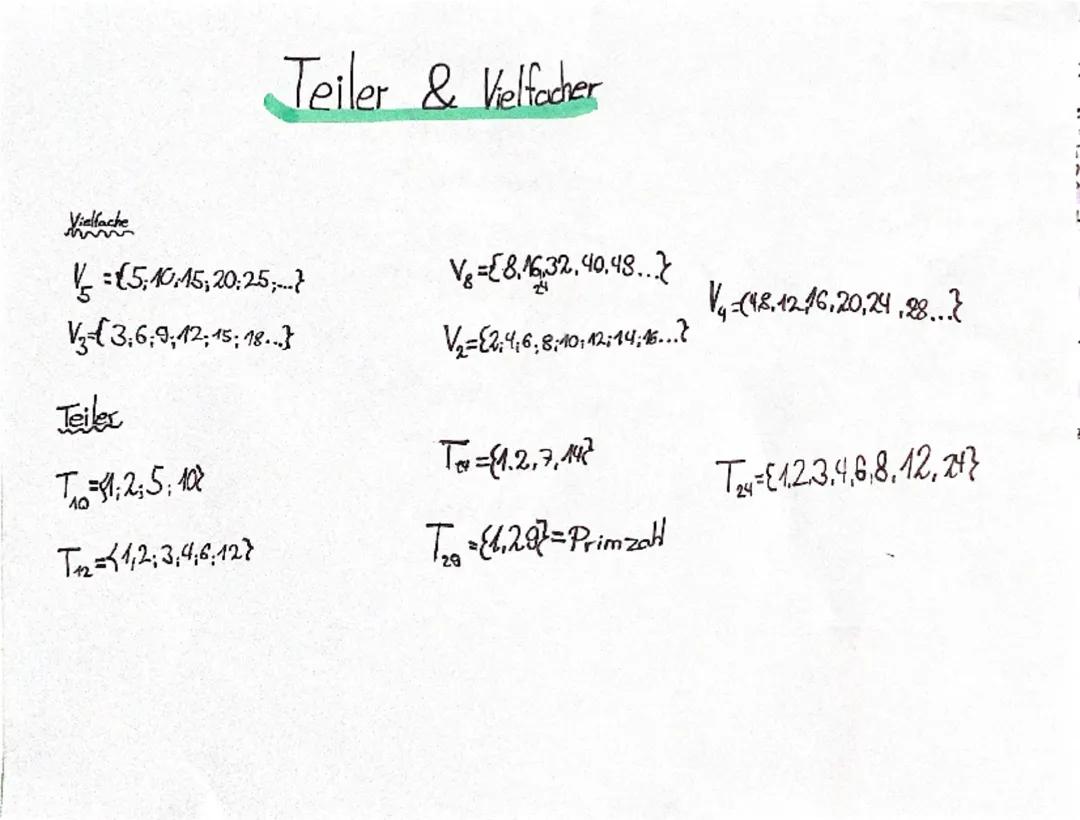 Teiler & Vielfacher
Vielfache
V5 = {5; 10; 15; 20; 25; ...}
V3 = { 3; 6; 9; 12; 15; 18...}
V8 = {8, 16, 32, 40, 48...}
24
V2 = {2; 4; 6, 8; 10; 12; 14; 16...}
V4 = {4 8, 12, 16, 20, 24, 28...}
Teiler
T10 = {1; 2; 5; 10}
T12 = {1, 2; 3; 4; 6; 12}
= {1, 2, 7, 14}
T29 = {1, 29} = Primzahl
T24 = {1, 2, 3, 4, 6, 8, 12, 24}